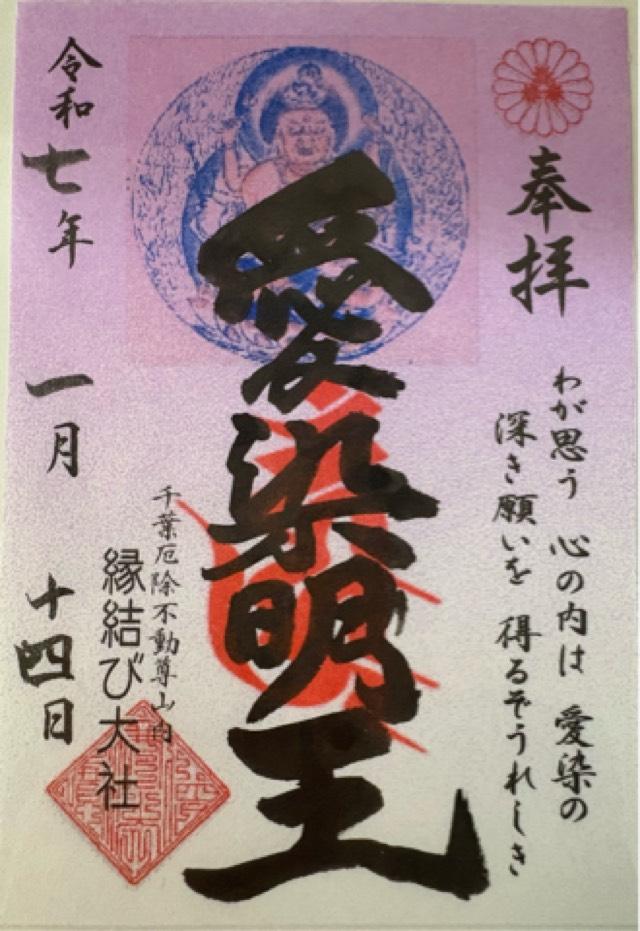 奉拝
わが思う 心の内は 愛染の
深き願いを 得るぞうれしき
愛染明王
千葉厄除不動尊山内
縁結び大社
令和七年 一月 十四日